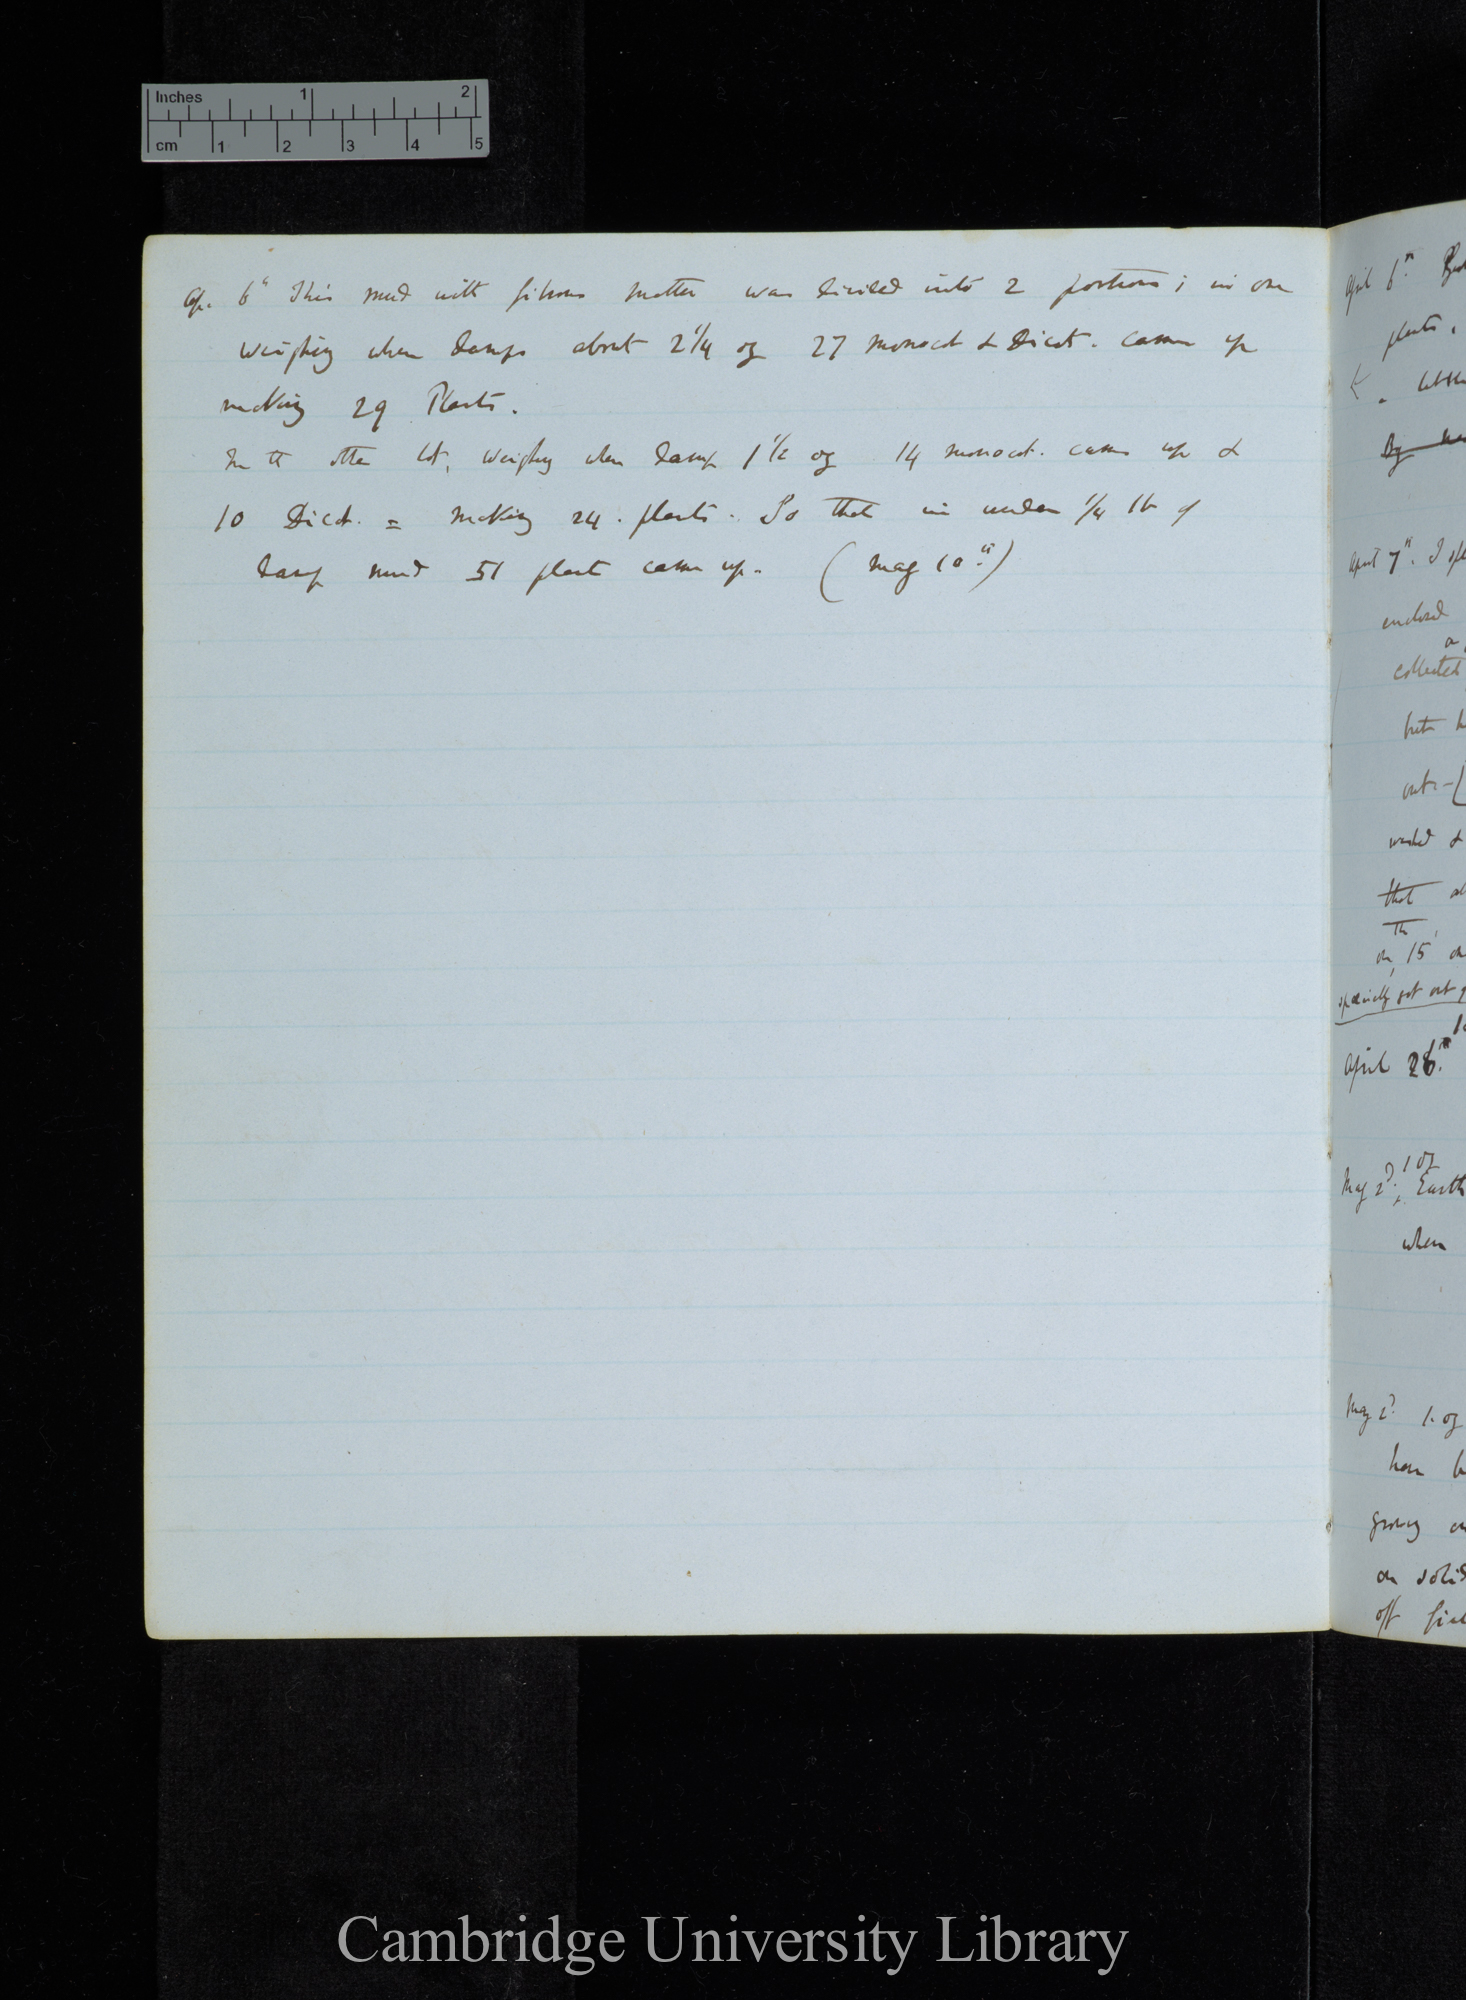 Inches 1 2
cm 1 2 3 4 5
Ap. 6th This mud with fibrous matter was divided into 2 portions; in one
weighing when damp about 2 1/4 oz 27 monocot & 2 Dicot. came up
making 29 Plants.
In the other lot, weighing when damp 1 1/2 oz 14 monocot. came up &
10 Dicot. = making 24. plants. So that in under 1/4 lb of
damp mud 51 plant came up. (May 10th)
April 6th.
plants.
April 7th. I
enclosed
collected
but
out.—(
washed &
that
The
on, 15
especially got out
April 26th
1 oz
May 2d. Earth
when
May 2d. 1. oz
have
growing
on solid
off
Cambridge University Library